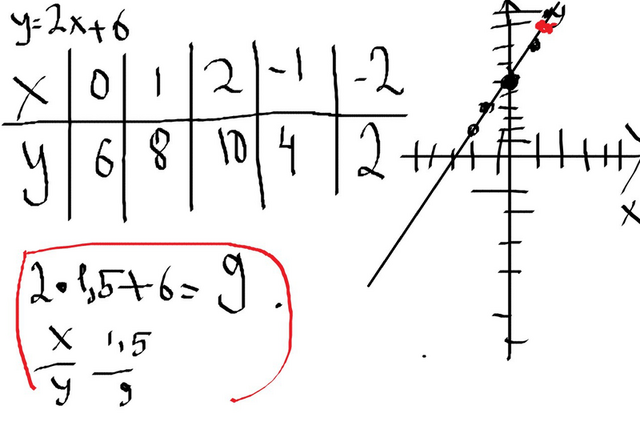 y=2x+6
x 0 1 2 -1 -2
y 6 8 10 4 2
2·1,5+6=9.
x 1,5
y 9
y
x